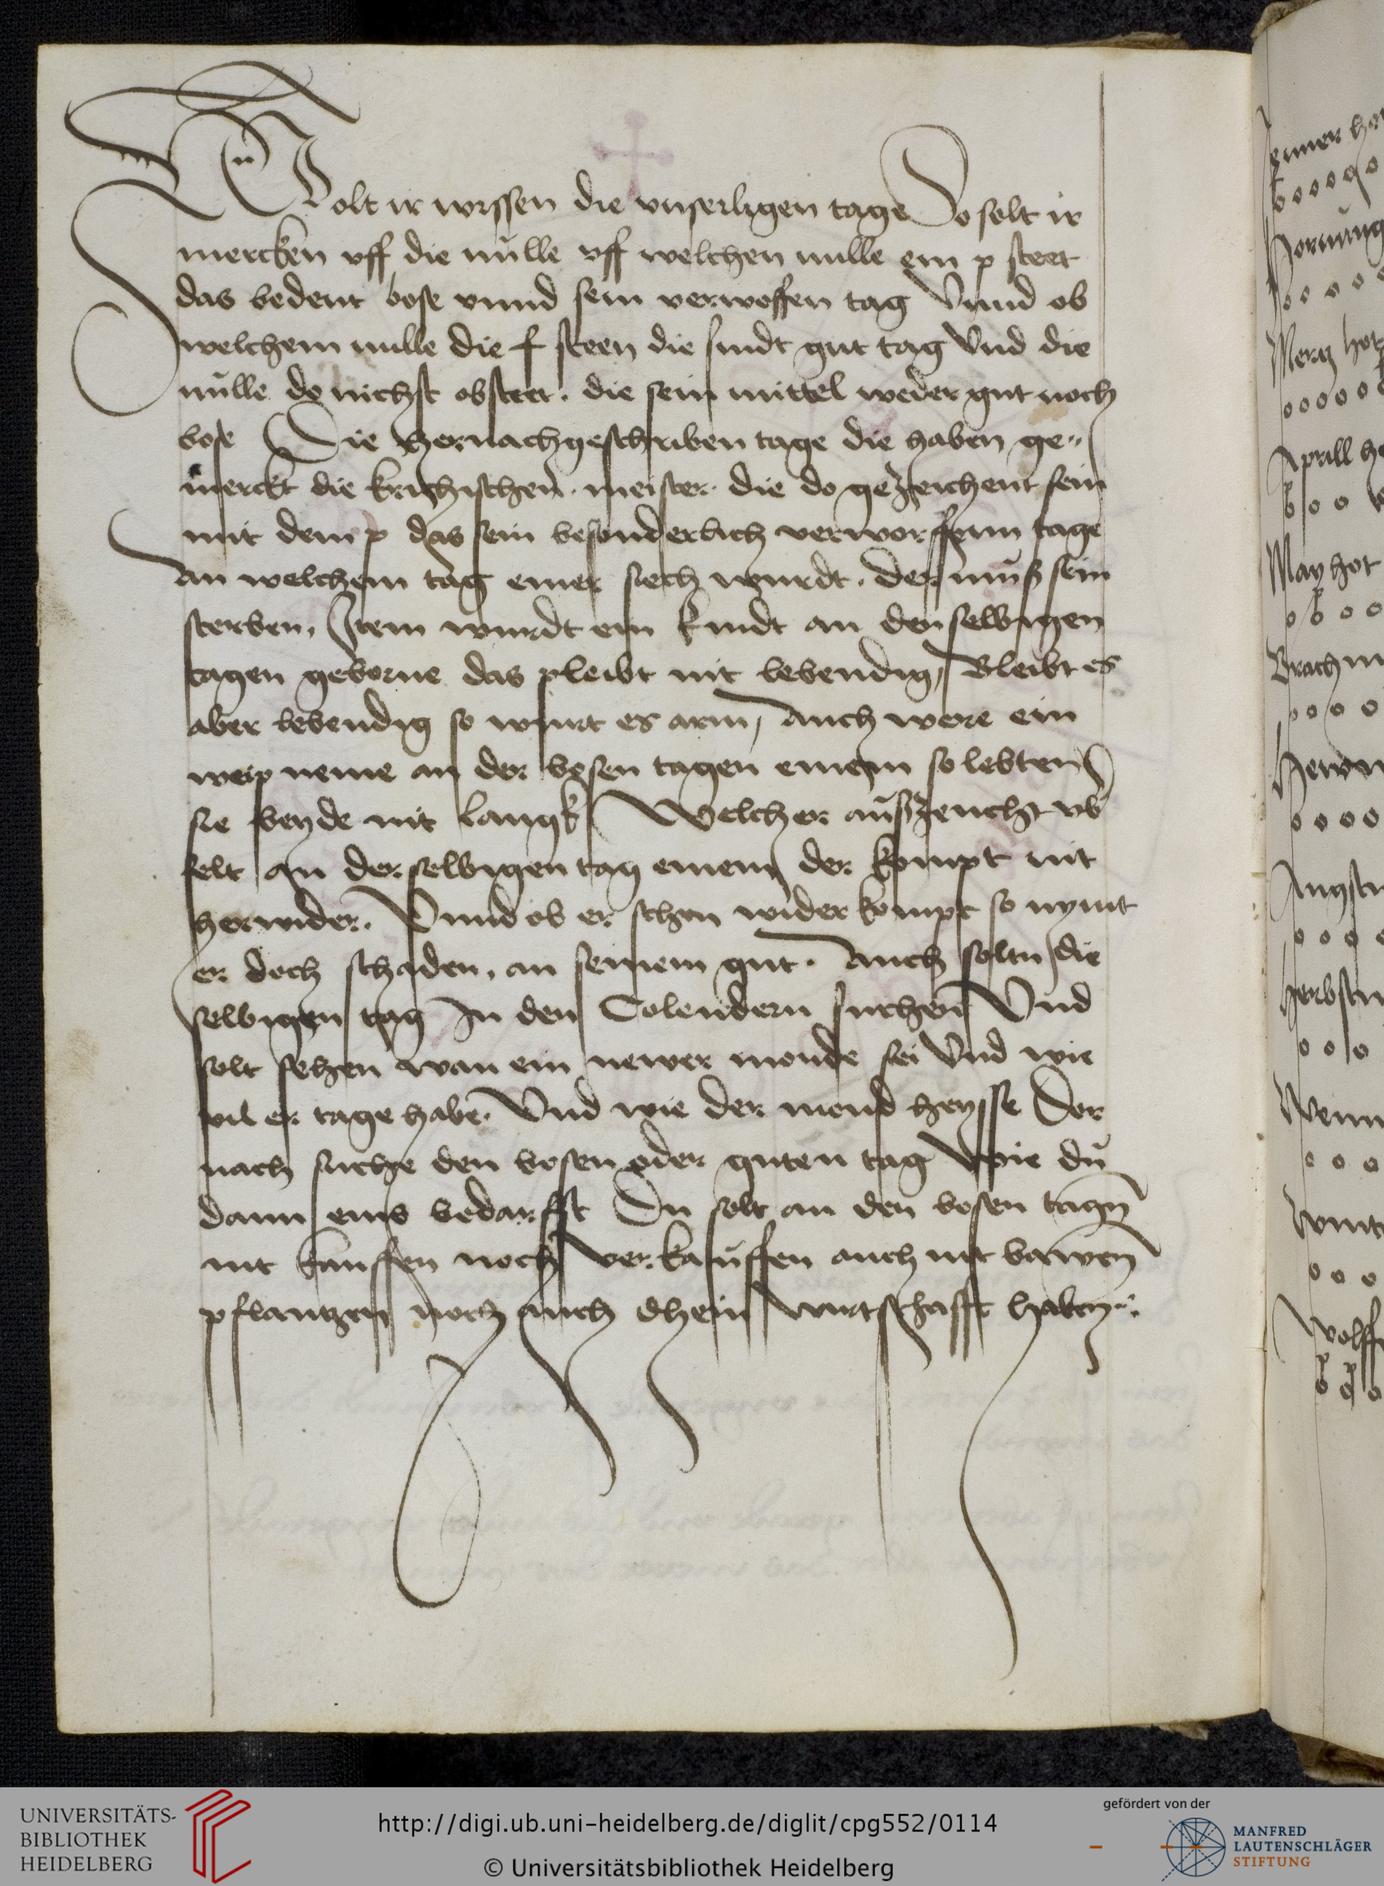 Wolt ir wissen die vnserligen tage Do solt ir
mercken vff die nulle vff welchen nulle ein p steet
das bedeut bose vnnd sein verwoffen tag Vnnd ob
welchem nulle die f steen die sindt gut tag Vnd die
nulle do nichst obsteet. die sein mittel weder gut noch
bose Die Hernachgeschriben tage die haben ge„
merckt die krichischen. meister. die do gezeichent sein
mit dem p das sein besonderlich verworffenn tage
An welchem tag einer siech wurdt. der muß sein
sterben. Item wurdt ein kindt an denselbigen
tagen geborne das pleibt nit lebendig, Bleibt es
aber lebendig so wurt es arm, Auch were ein
weip neme an der bosen tagen einem so lebten
sie beyde nit langk Welcher außzeucht vb
felt an der selbigen tag einem der kompt nit
herwider. Vnnd ob er schon wider kompt so nymt
er doch schaden. an seinem gut. Auch soltu die
selbigen tag In den Colendern suchen Vnd
solt sehen wan ein newer monde sei Vnd wie
vil er tage habe. Vnd wie der mond heysse Dor
nach suche den bosen oder guten tag Wie du
dann eins bedarfft Du solt an den bosen tagn
nit kauffen noch verkauffen auch nit bawen
pflantzen noch auch dhein wurtschafft halten
Jenner
Hornung
Mertz hot
Aprill
May hot
Brach
Augst
Herbst
Wolff
UNIVERSITÄTS-
BIBLIOTHEK
HEIDELBERG
http://digi.ub.uni-heidelberg.de/diglit/cpg552/0114
© Universitätsbibliothek Heidelberg
gefördert von der
MANFRED
LAUTENSCHLÄGER
STIFTUNG